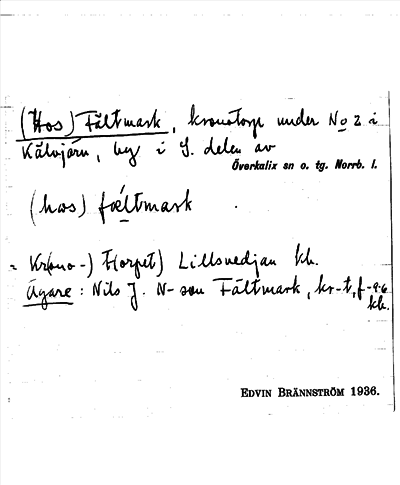 (Hos) Fältmark, kronotorp under No 2 i
Kälvjärv, by i S. delen av
Överkalix sn o. tg. Norrb. l.
(hos) fǽltmark
= Kr(ono-) T(orpet) Lillsvedjan kb.
Ägare: Nils J. N-son Fältmark, kr-t, f-96
kb.
EDVIN BRÄNNSTRÖM 1936.